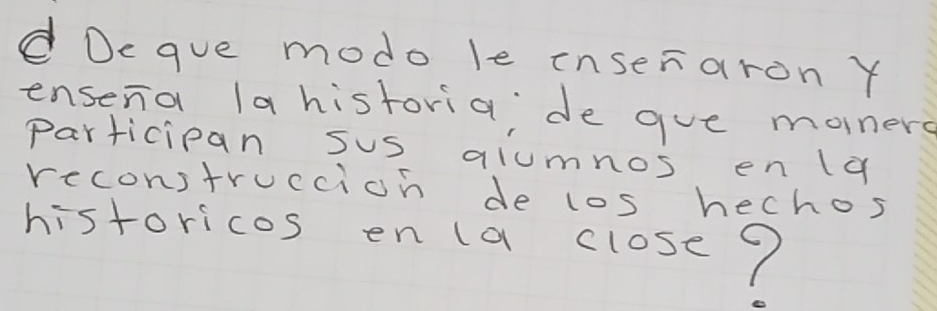 d De que modo le enseñaron y
enseña la historia; de que manera
Participan sus alumnos en la
reconstruccion de los hechos
historicos en la close?